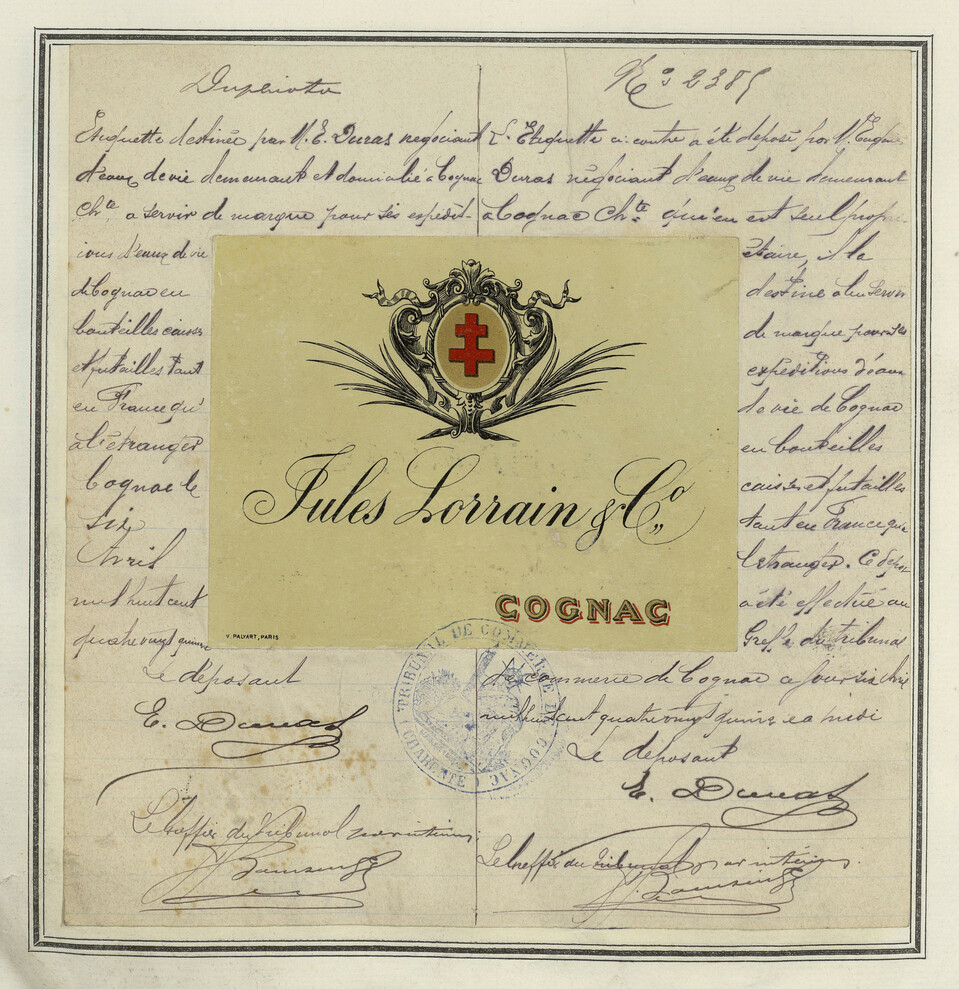 Duplicata
Etiquette destinée par M. E. Duras négociant
d'eaux de vie demeurant et domicilié à Cognac
Ch.te a servir de marque pour ses expédit-
ions d'eaux de vie
de Cognac en
bouteilles caisses
et futailles tant
en France qu'
à l'étranger
Cognac le
six
Avril
mil huit cent
quatre vingt quinze
Le déposant
E. Duras
Le Greffier du Tribunal par intérim
No 2385
L'Etiquette ci contre a été déposé par M. Eugène
Duras négociant d'eaux de vie demeurant
à Cognac Ch.te qu'en est seul propri-
étaire, il la
destine à lui servir
de marque pour ses
expéditions d'eaux
de vie de Cognac
en bouteilles
caisses et futailles
tant en France que
l'étranger. Ce dépot
a été effectué au
Greffe du tribunal
de commerce de Cognac ce jour six Avril
mil huit cent quatre vingt quinze a midi
Le déposant
E. Duras
Le Greffier du Tribunal par intérim.
Jules Lorrain & Co
COGNAC
V. PALYART, PARIS
TRIBUNAL DE COMMERCE DE COGNAC
(CHARENTE)